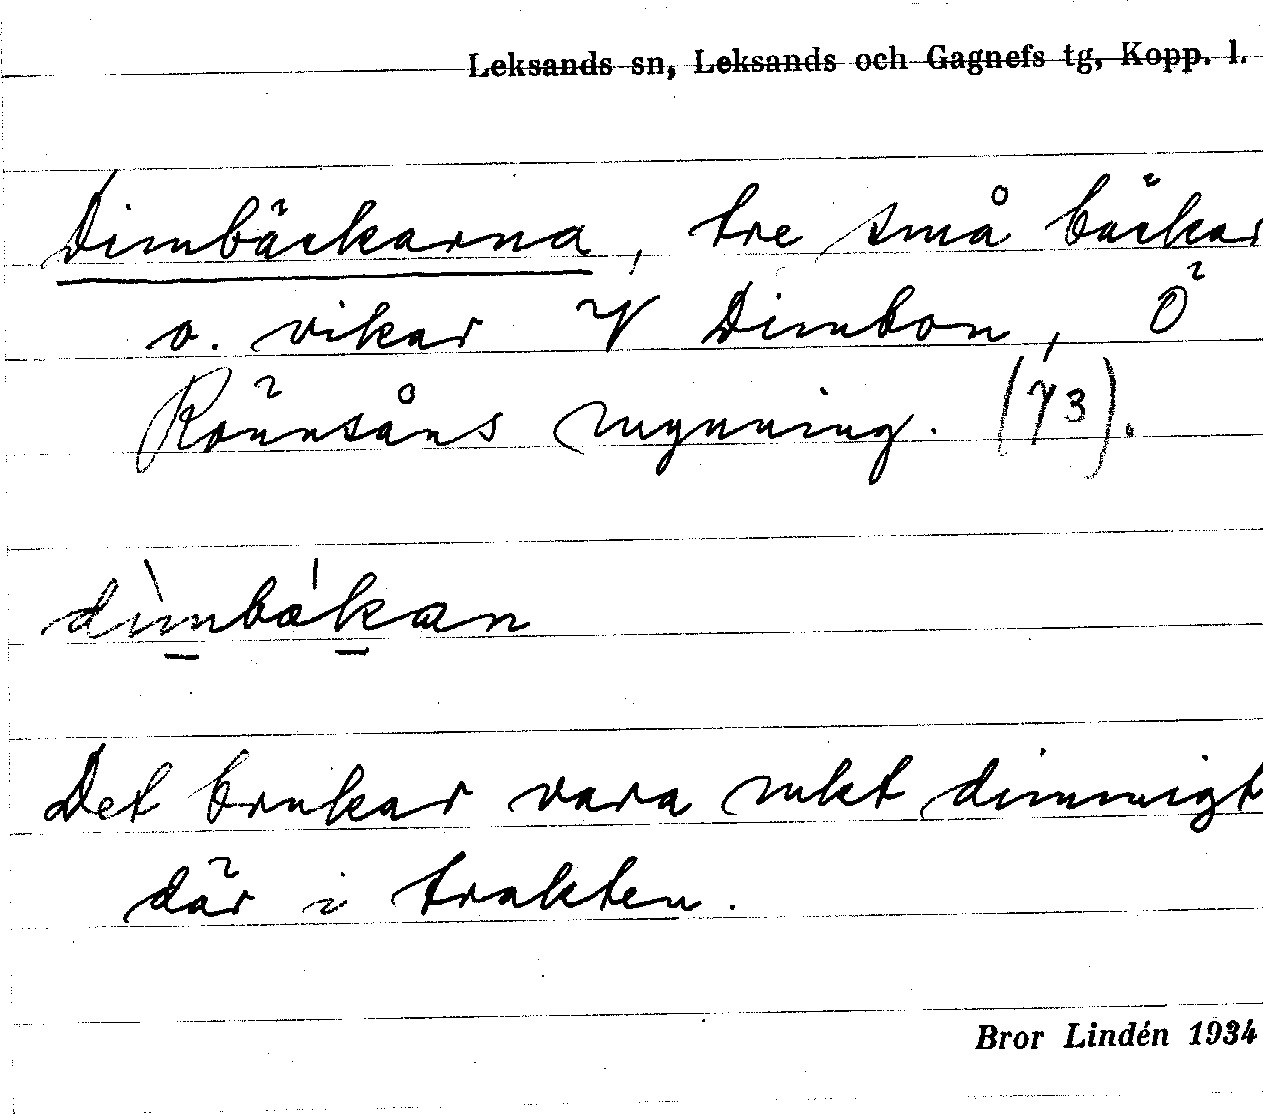 Leksands sn, Leksands och Gagnefs tg, Kopp. l.
Dimbäckarna, tre små bäckar
o. vikar V Dimbon, Ö
Rönnsåns mynning. (73).
dìmbákan
Det brukar vara mkt dimmigt
där i trakten.
Bror Lindén 1934